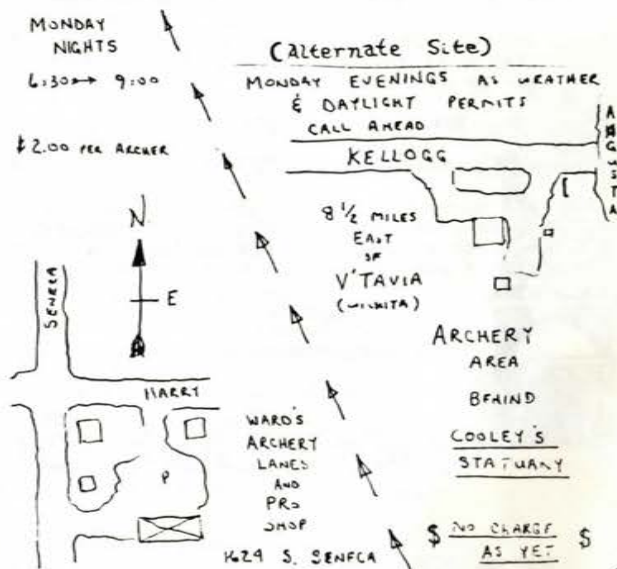 MONDAY
NIGHTS
6:30 → 9:00
$2.00 PER ARCHER
N
E
SENECA
HARRY
P
WARD'S
ARCHERY
LANES
AND
PRO
SHOP
1624 S. SENECA
(Alternate Site)
MONDAY EVENINGS AS WEATHER
& DAYLIGHT PERMITS
CALL AHEAD
KELLOGG
AUGUSTA
8 1/2 MILES
EAST
OF
V'TAVIA
(WICHITA)
ARCHERY
AREA
BEHIND
COOLEY'S
STATUARY
$ NO CHARGE $
AS YET